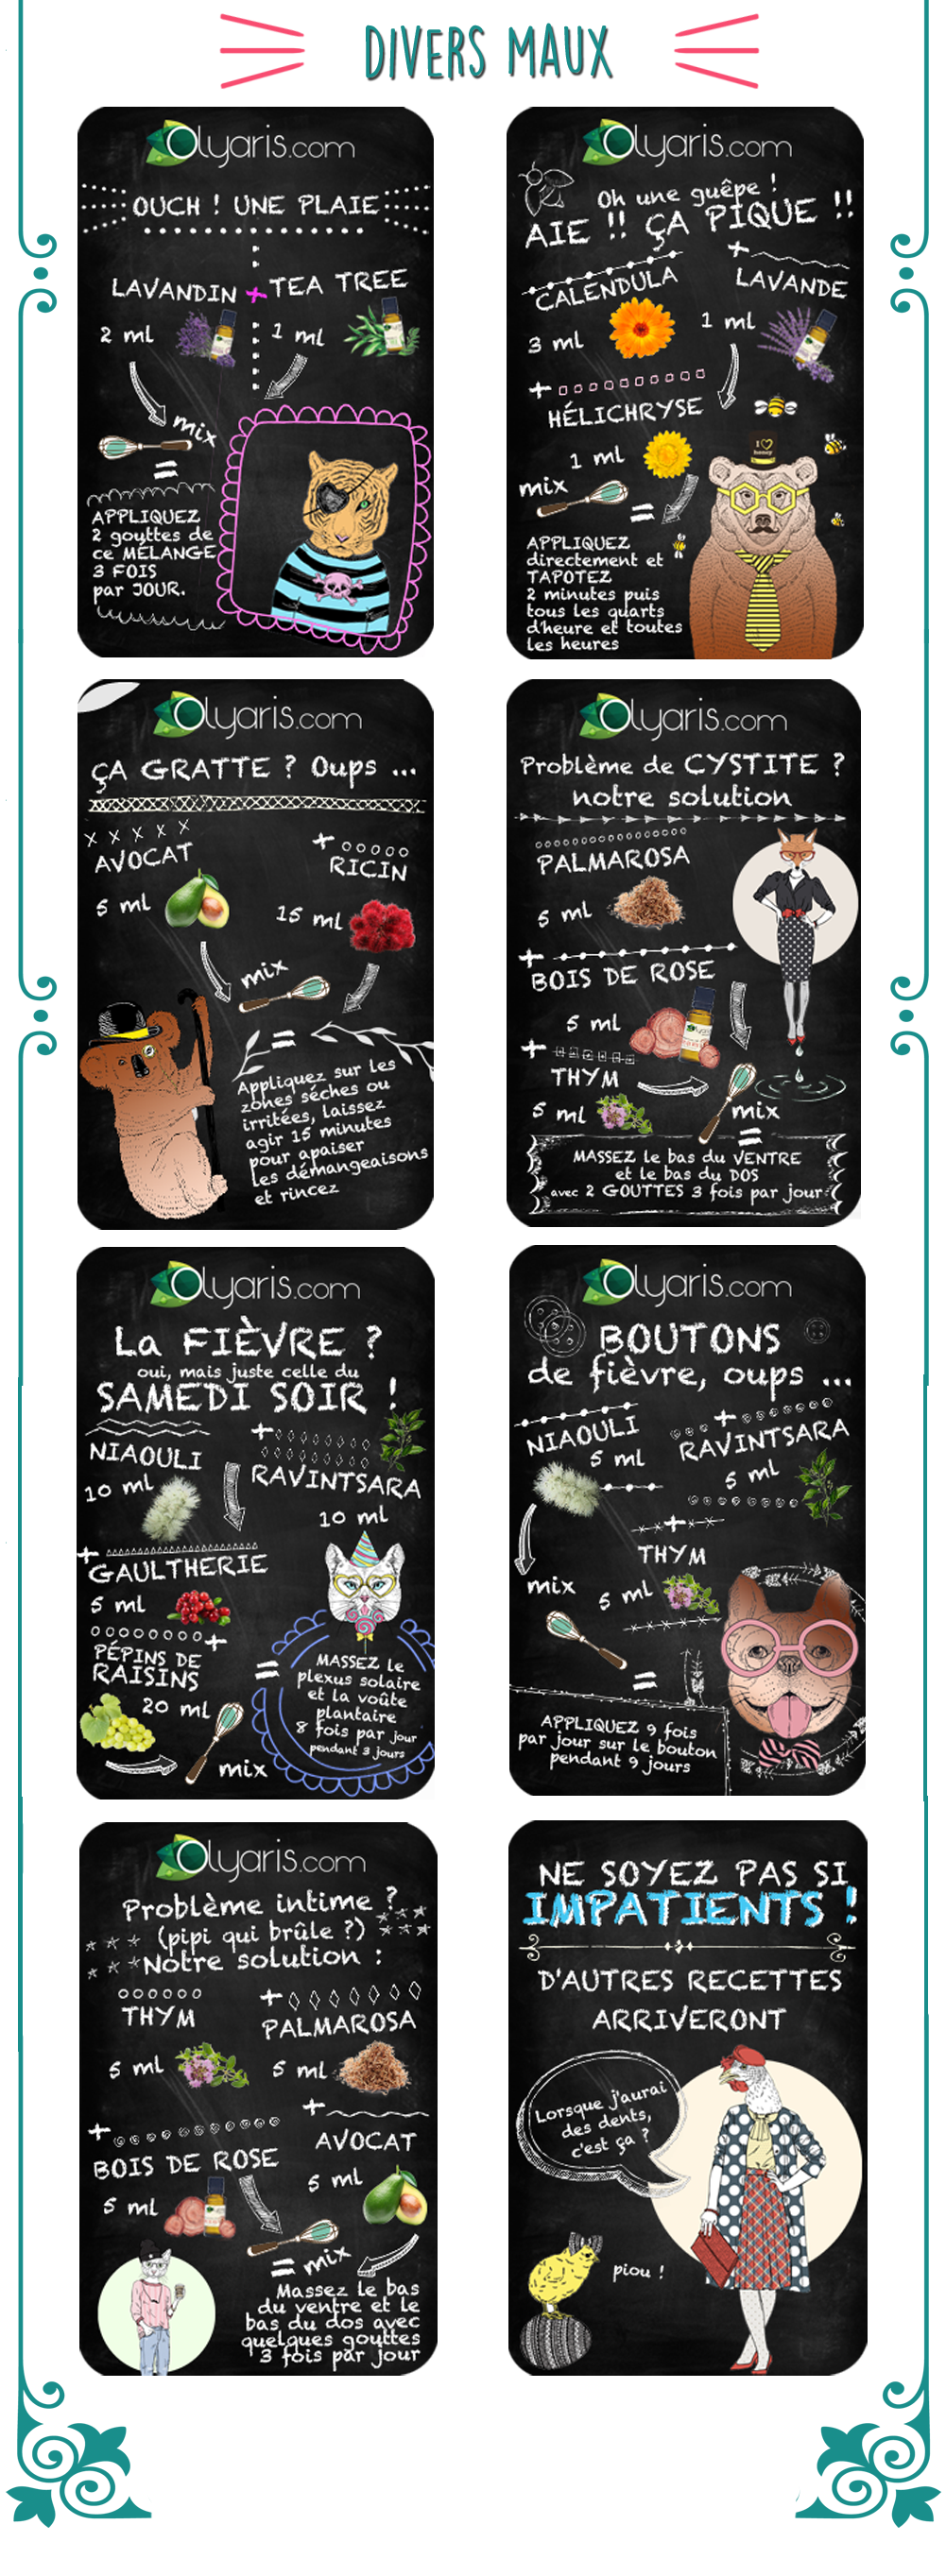 DIVERS MAUX
Olyaris.com
OUCH ! UNE PLAIE
LAVANDIN + TEA TREE
2 ml
1 ml
mix
=
APPLIQUEZ
2 gouttes de
ce MÉLANGE
3 FOIS
par JOUR.
Olyaris.com
Oh une guêpe !
AIE !! ÇA PIQUE !!
CALENDULA
3 ml
+
LAVANDE
1 ml
+
HÉLICHRYSE
1 ml
mix
=
I ♡
honey
APPLIQUEZ
directement et
TAPOTEZ
2 minutes puis
tous les quarts
d'heure et toutes
les heures
Olyaris.com
ÇA GRATTE ? Oups ...
AVOCAT
5 ml
+
RICIN
15 ml
mix
=
Appliquez sur les
zones sèches ou
irritées, laissez
agir 15 minutes
pour apaiser
les démangeaisons
et rincez
Olyaris.com
Problème de CYSTITE ?
notre solution
PALMAROSA
5 ml
+
BOIS DE ROSE
5 ml
+
THYM
5 ml
mix
=
MASSEZ le bas du VENTRE
et le bas du DOS
avec 2 GOUTTES 3 fois par jour
Olyaris.com
La FIÈVRE ?
oui, mais juste celle du
SAMEDI SOIR !
NIAOULI
10 ml
+
RAVINTSARA
10 ml
+
GAULTHERIE
5 ml
+
PÉPINS DE
RAISINS
20 ml
mix
=
MASSEZ le
plexus solaire
et la voûte
plantaire
8 fois par jour
pendant 3 jours
Olyaris.com
BOUTONS
de fièvre, oups ...
NIAOULI
5 ml
+
RAVINTSARA
5 ml
+
THYM
5 ml
mix
=
APPLIQUEZ 9 fois
par jour sur le bouton
pendant 9 jours
Olyaris.com
Problème intime ?
(pipi qui brûle ?)
Notre solution :
THYM
5 ml
+
PALMAROSA
5 ml
+
BOIS DE ROSE
5 ml
+
AVOCAT
5 ml
= mix
Massez le bas
du ventre et le
bas du dos avec
quelques gouttes
3 fois par jour
NE SOYEZ PAS SI
IMPATIENTS !
D'AUTRES RECETTES
ARRIVERONT
Lorsque j'aurai
des dents,
c'est ça ?
piou !